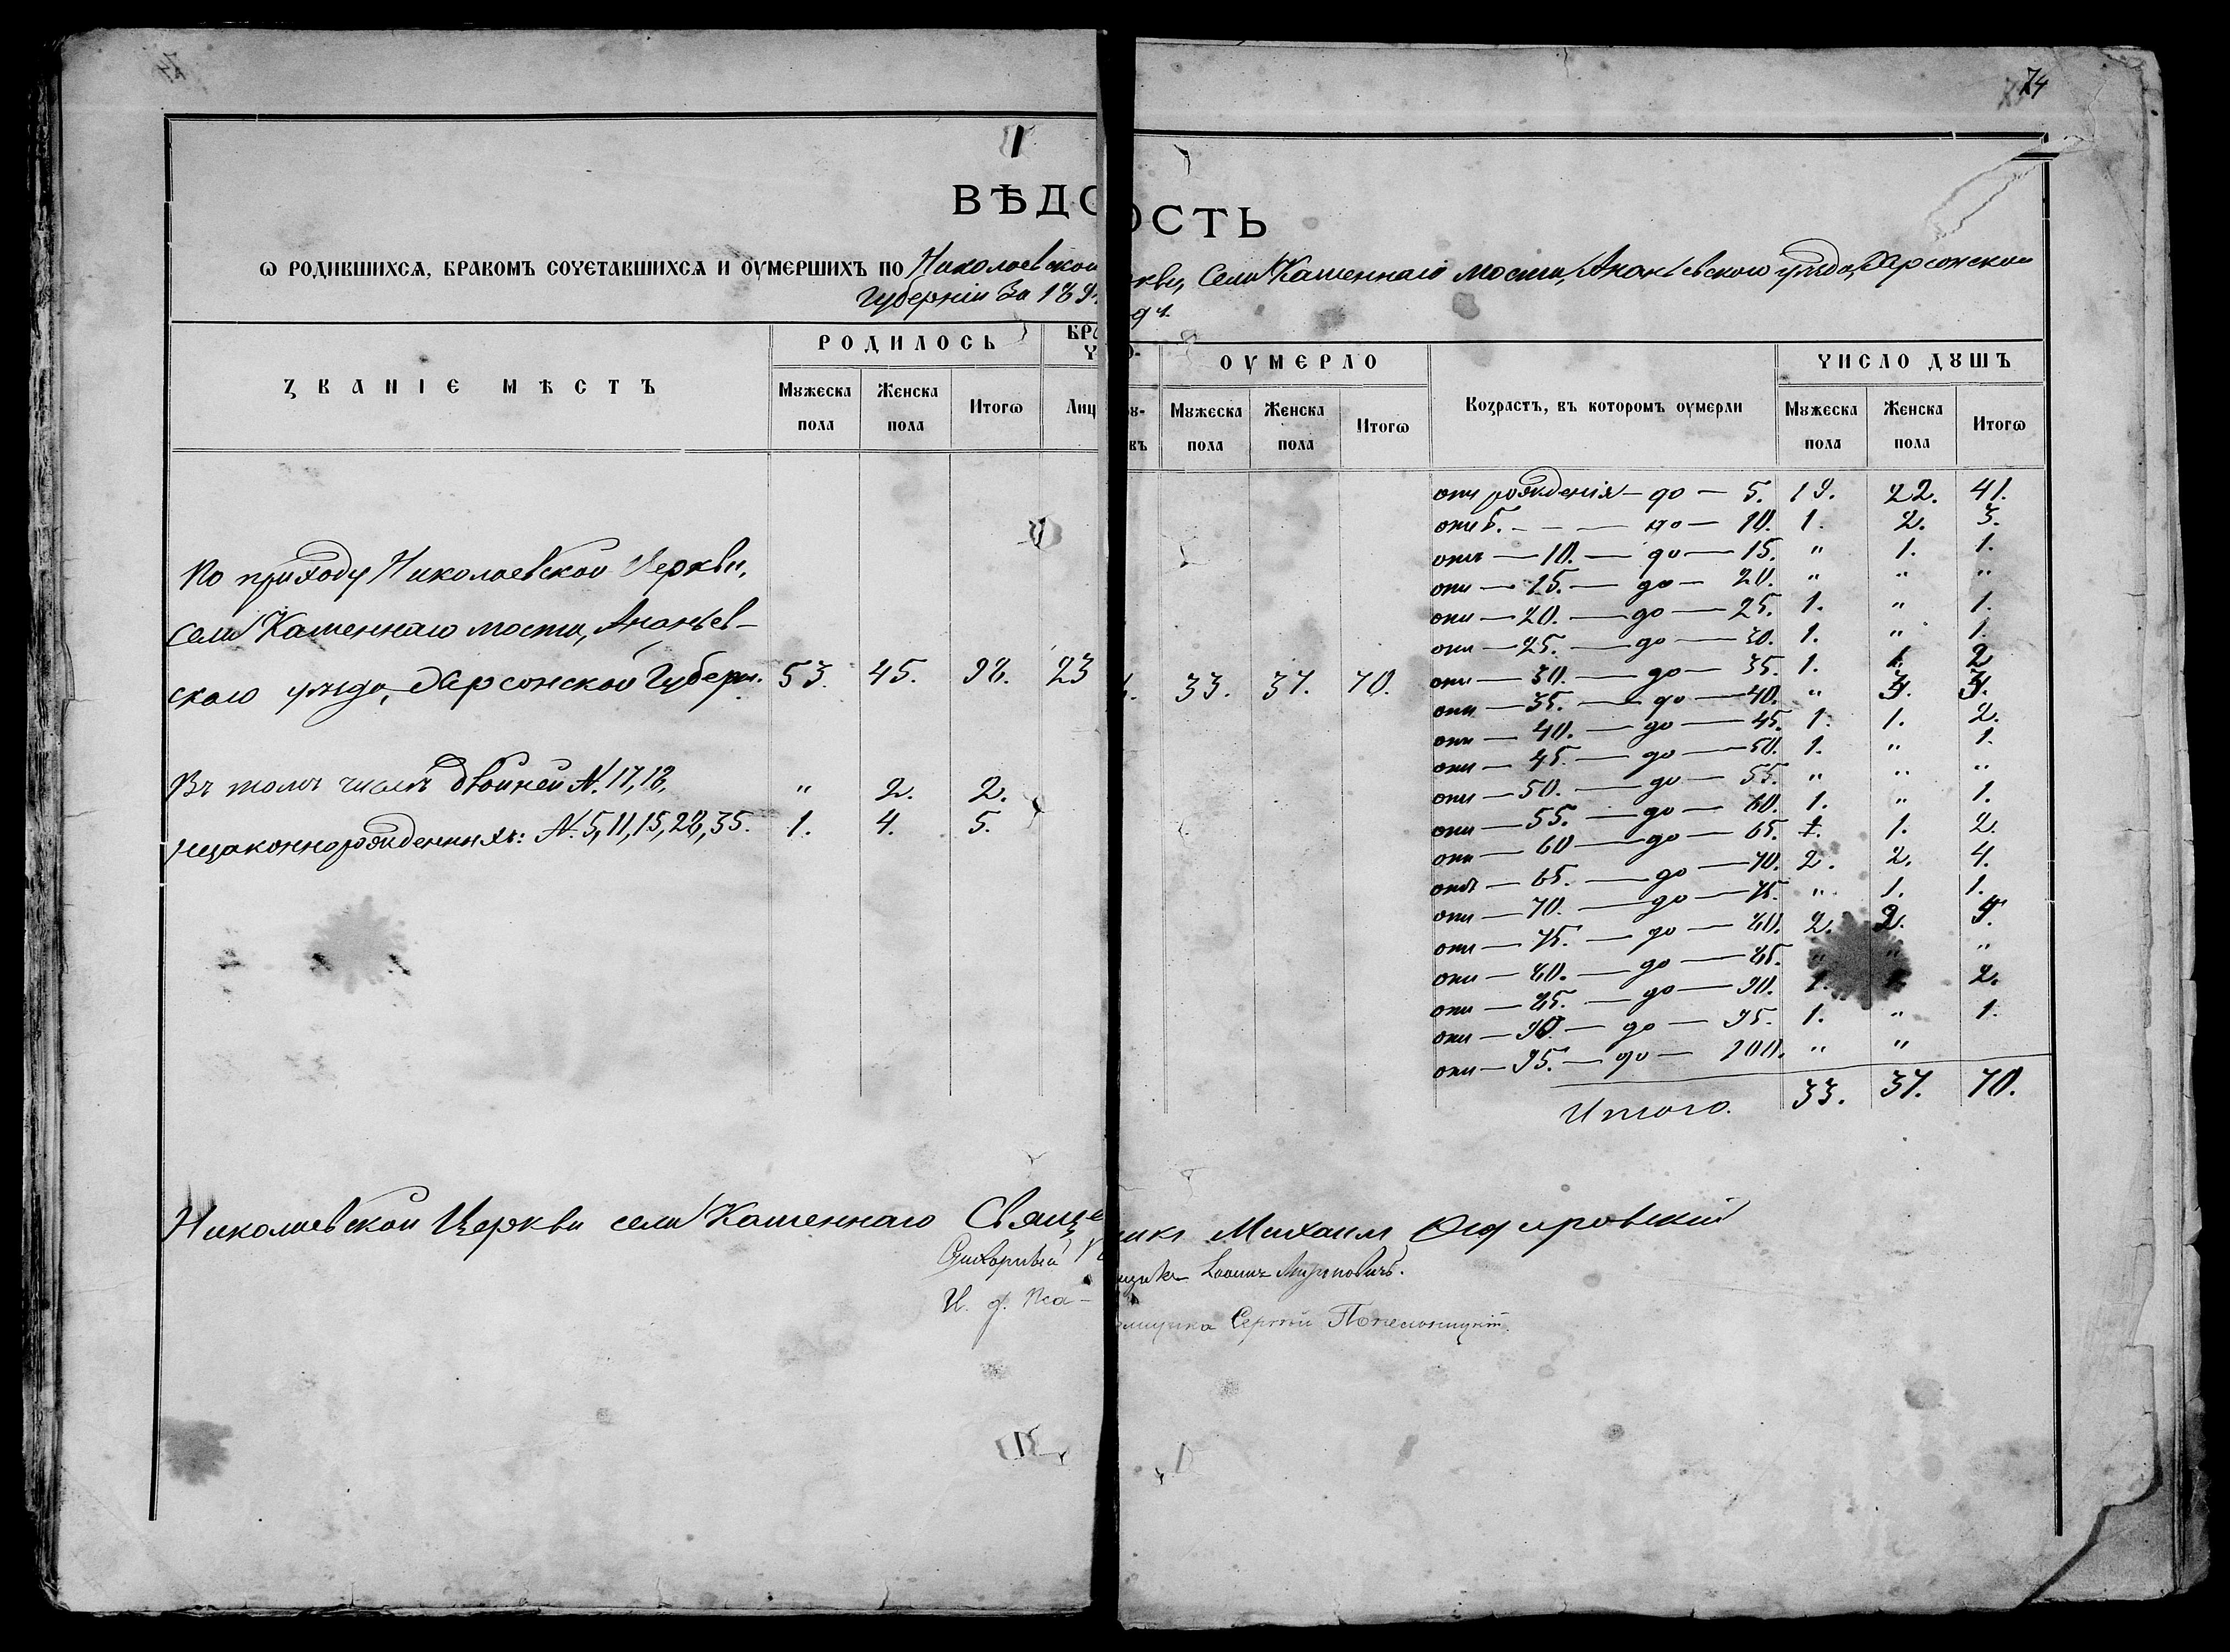 74
ВѢДО ОСТЬ
ѡ родившихсѧ, бракомъ сочетавшихсѧ и оумершихъ по Николаевской кви, Села Каменнаго моста, Ананьевскаго уѣзда, Херсонской
Губерніи За 189
РОДИЛОСЬ
ОУМЕРЛО
ЧИСЛО ДꙊШЪ
ЗВАНІЕ МѢСТЪ
Мꙋжеска пола
Женска пола
Итогѡ
Лиц
Мꙋжеска пола
Женска пола
Итогѡ
Возрастъ, въ которомъ оумерли
Мꙋжеска пола
Женска пола
Итогѡ
По приходу Николаевской Церкви,
Села Каменнаго моста, Ананьев-
скаго уѣзда, Херсонской Губерн. 53. 45. 98. 23 33. 37. 70.
Въ томъ числѣ двойней N. 17, 18, " 2. 2.
незаконнорожденныхъ: N. 5, 11, 15, 28, 35. 1. 4. 5.
отъ рожденія — до — 5. 19. 22. 41.
отъ 5. — — до — 10. 1. 2. 3.
отъ — 10. — до — 15. " 1. 1.
отъ — 15. — до — 20. " " "
отъ — 20. — до — 25. 1. " 1.
отъ — 25. — до — 30. 1. " 1.
отъ — 30. — до — 35. 1. 1. 2
отъ — 35. — до — 40. " 3. 3.
отъ — 40. — до — 45. 1. 1. 2.
отъ — 45. — до — 50. 1. " 1.
отъ — 50. — до — 55. " " "
отъ — 55. — до — 60. 1. " 1.
отъ — 60 — до — 65. 1. 1. 2.
отъ — 65. — до — 70. 2. 2. 4.
отъ — 70. — до — 75. " 1. 1.
отъ — 75. — до — 80. 2. 2. 4.
отъ — 80. — до — 85. " " "
отъ — 85. — до — 90. 1. 1. 2.
отъ — 90. — до — 95. 1. " 1.
отъ — 95. — до — 100. " "
Итого. 33. 37. 70.
Николаевской Церкви села Каменнаго Свяще никъ Михаилъ
И. д. Пса- ломщика Сергѣй